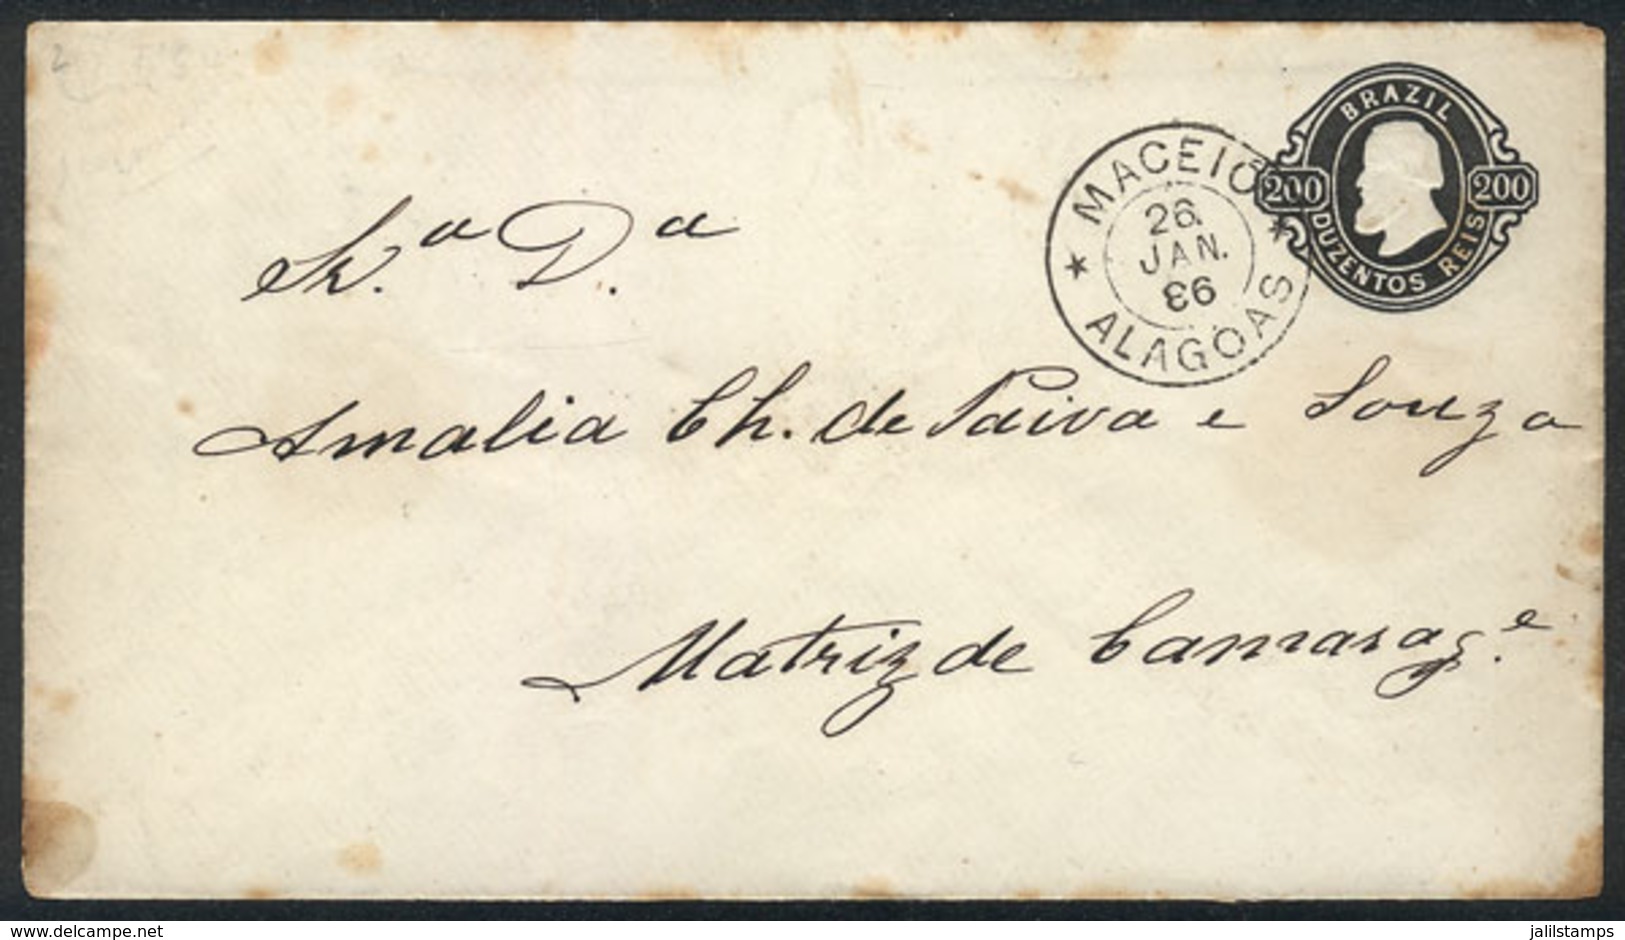 BRAZIL
200 200
DUZENTOS REIS
MACEIO
26 JAN. 86
ALAGOAS
D.ª
Amalia Ch. de Paiva e Souza
Matriz de Camarag.e
delcampe.net
jalilstamps